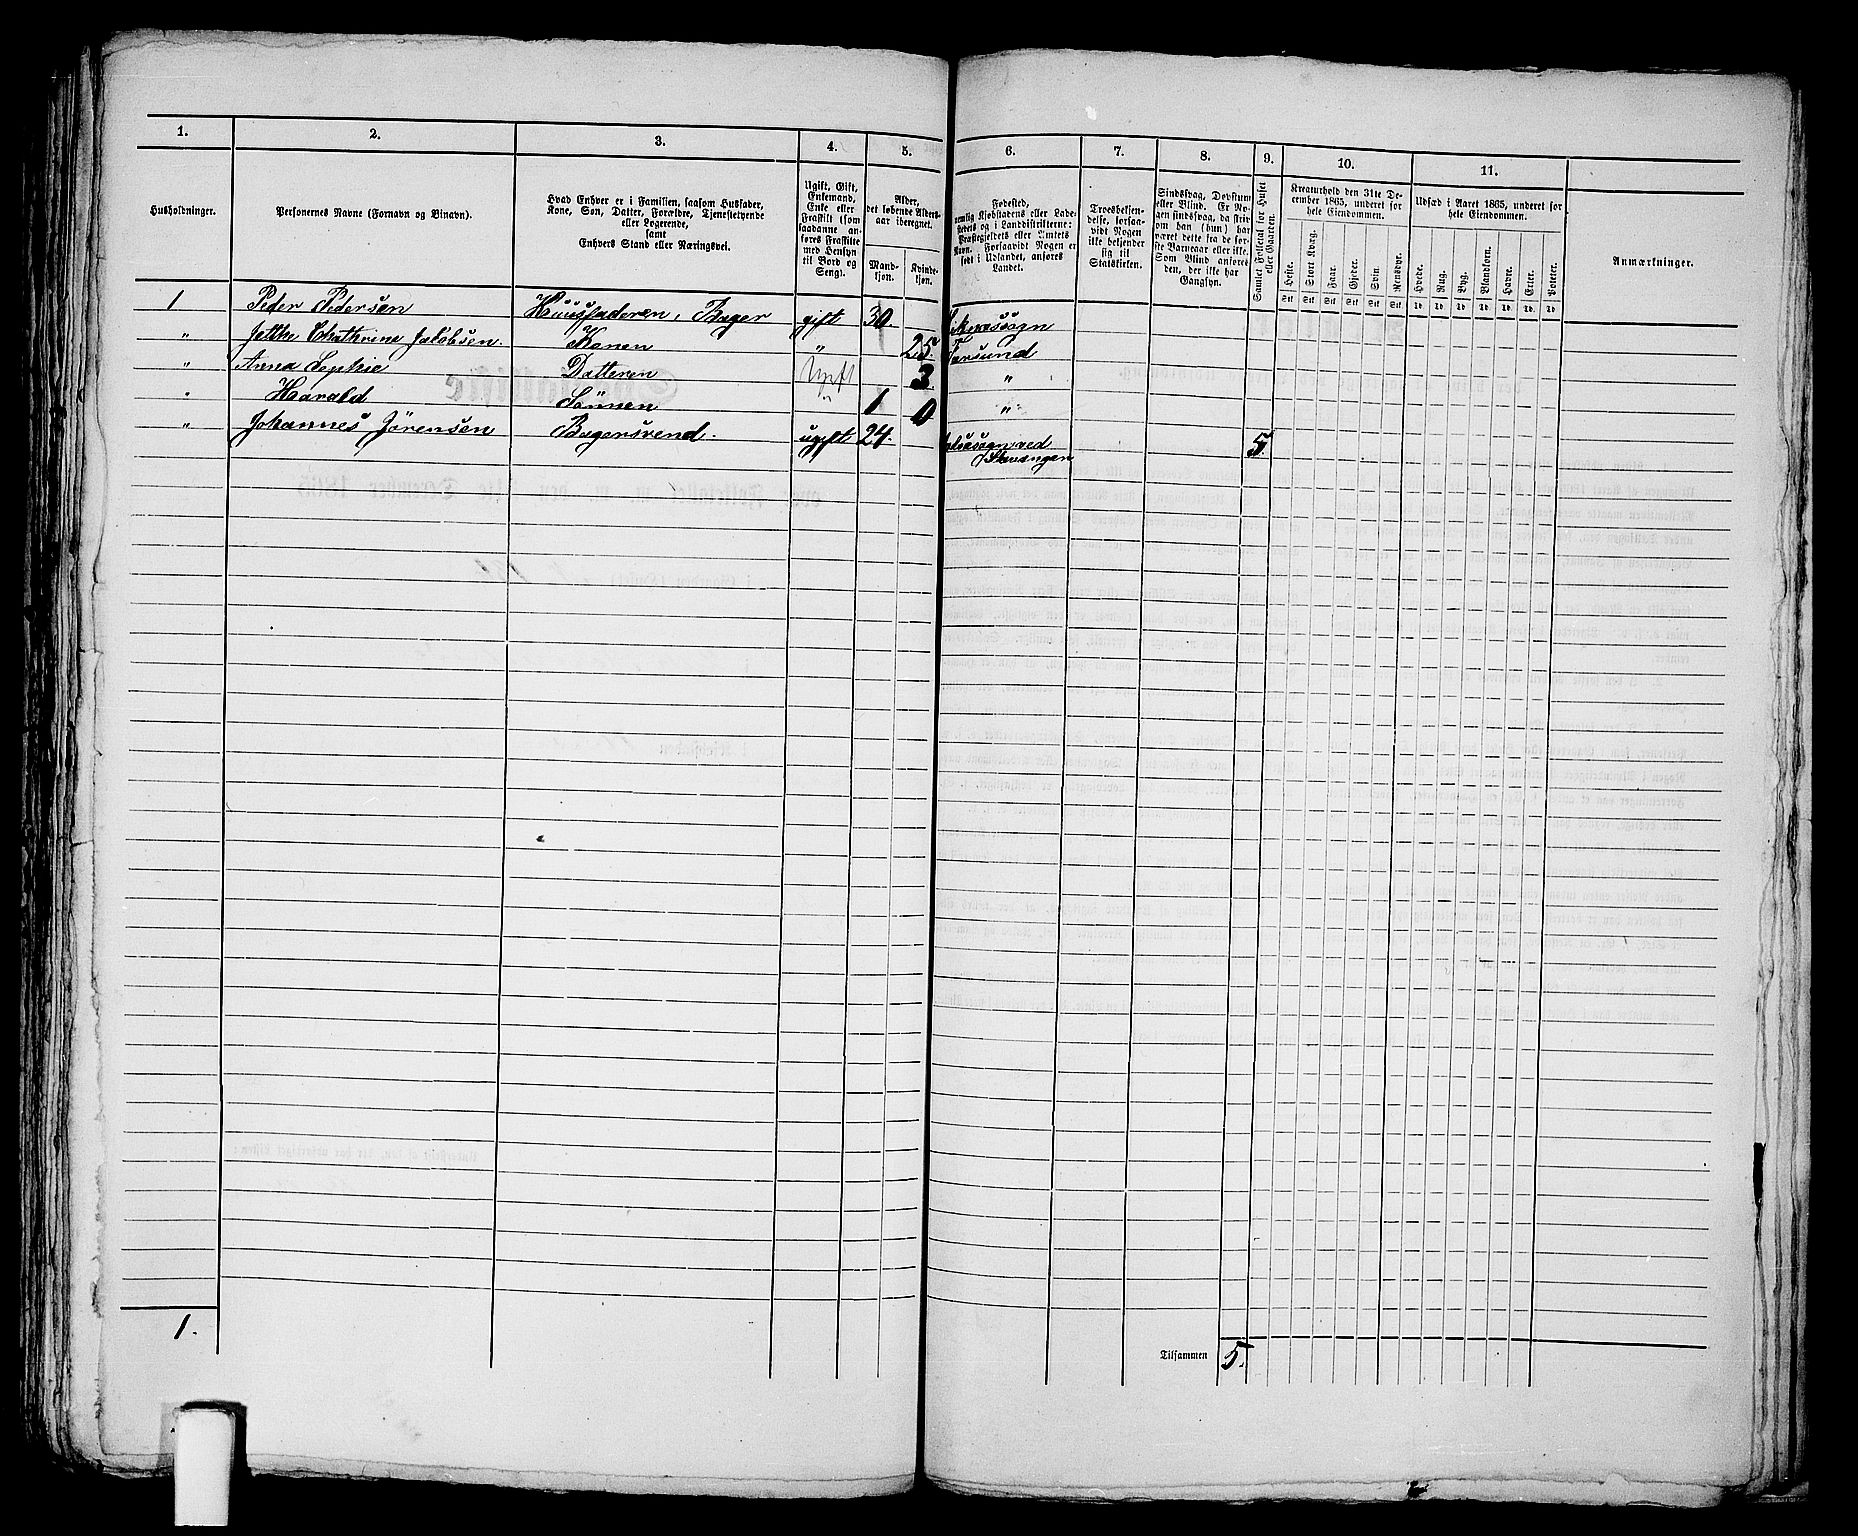 1. 2. 3. 4. 5. 6. 7. 8. 9. 10. 11.
Husholdninger.
Personernes Navne (Fornavn og Binavn).
Hvad Enhver er i Familien, saasom Husfader,
Kone, Søn, Datter, Forældre, Tjenestetyende
eller Logerende,
samt
Enhvers Stand eller Næringsvei.
Ugift, Gift,
Enkemand,
Enke eller
Fraskilt (som
saadanne an-
føres Fraskilte
med Hensyn
til Bord og
Seng).
Alder,
det løbende Alders-
aar iberegnet.
Mand-
kjøn.
Kvinde-
kjøn.
Fødested,
nemlig Kjøbstadens eller Lade-
stedets og i Landdistrikterne:
Præstegjeldets eller Amtets
Navn. Forsaavidt Nogen er
født i Udlandet, anføres
Landet.
Troesbekjen-
delse, forsaa-
vidt Nogen
ikke bekjender
sig til
Statskirken.
Sindssvag, Døvstum
eller Blind. Er No-
gen sindssvag, da skriv
om han (hun) har
været dette fra de før-
ste Barneaar eller ikke.
Som Blind anføres
den, der ikke har
Gangsyn.
Samlet Folketal for Huset
eller Gaarden.
Kreaturhold den 31te De-
cember 1865, underet for
hele Eiendommen.
Heste. Stort Kvæg. Faar. Gjeder. Svin. Rensdyr.
Stk Stk Stk Stk Stk Stk
Udsæd i Aaret 1865, underet for
hele Eiendommen.
Hvede. Rug. Byg. Blandkorn. Havre. Erter. Poteter.
Td. Td. Td. Td. Td. Td. Td.
Anmærkninger.
1 Peder Pedersen Huusfaderen, Bager gift 30.
" Jakobsen. Konen " 25. Farsund
" Anna Sophie Datteren Ugift 3 "
" Harald Sönnen " 1 0 "
" Johannes Jörensen Bagersvend. ugift 24. ved
Stavangen 5.
1.
Tilsammen 5.